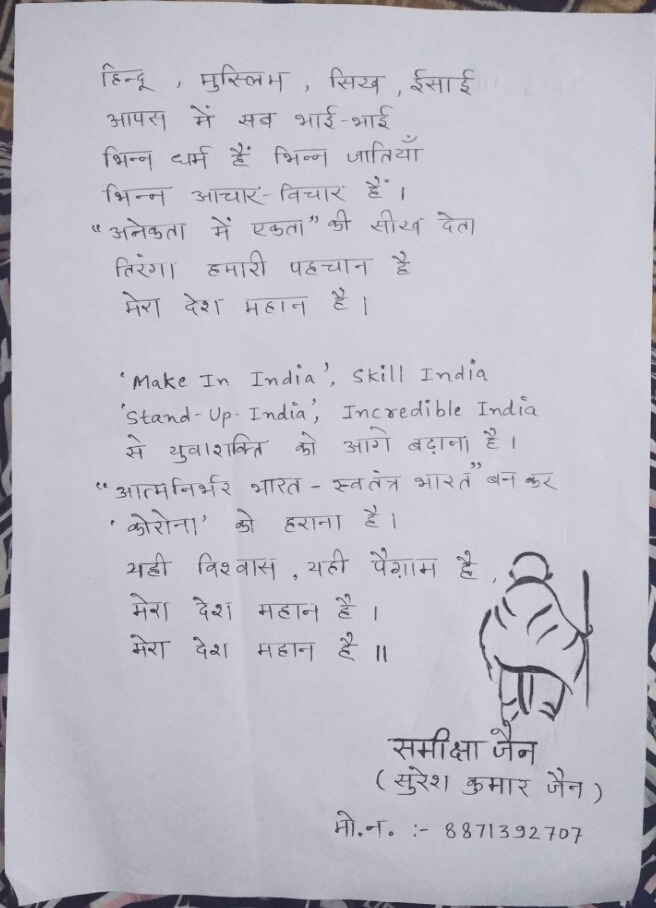 हिन्दू , मुस्लिम , सिख , ईसाई
आपस में सब भाई-भाई
भिन्न धर्म हैं भिन्न जातियाँ
भिन्न आचार-विचार हैं ।
"अनेकता में एकता" की सीख देता
तिरंगा हमारी पहचान है
मेरा देश महान है ।
'Make In India', Skill India
'Stand-Up-India', Incredible India
से युवाशक्ति को आगे बढ़ाना है ।
"आत्मनिर्भर भारत - स्वतंत्र भारत" बन कर
'कोरोना' को हराना है ।
यही विश्वास , यही पैग़ाम है ,
मेरा देश महान है ।
मेरा देश महान है ॥
समीक्षा जैन
( सुरेश कुमार जैन )
मो.न. :- 8871392707